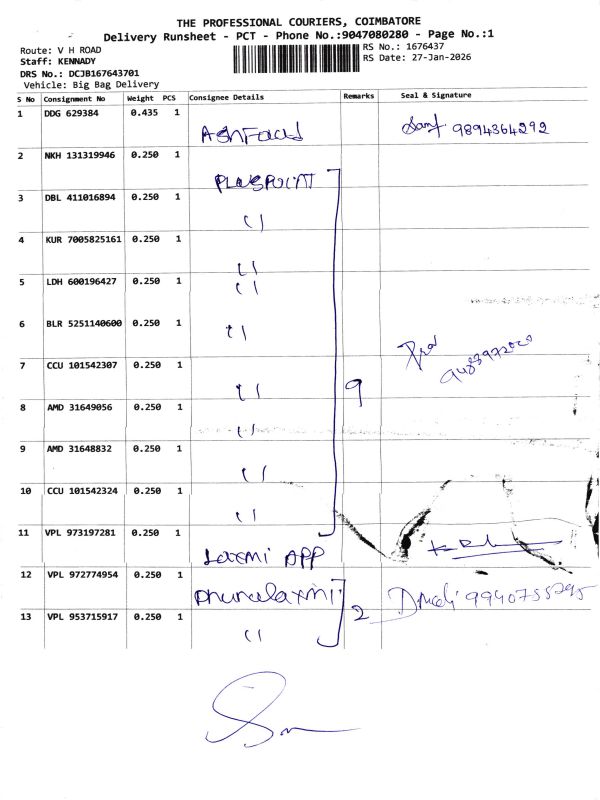 THE PROFESSIONAL COURIERS, COIMBATORE
Delivery Runsheet - PCT - Phone No.:9047080280 - Page No.:1
Route: V H ROAD
RS No.: 1676437
Staff: KENNADY
RS Date: 27-Jan-2026
DRS No.: DCJB167643701
Vehicle: Big Bag Delivery
S No Consignment No Weight PCS Consignee Details Remarks Seal & Signature
1 DDG 629384 0.435 1 9894364292
2 NKH 131319946 0.250 1 PLUSPOINT
3 DBL 411016894 0.250 1 ( )
4 KUR 7005825161 0.250 1 ( )
5 LDH 600196427 0.250 1 ( )
6 BLR 5251140600 0.250 1 ( )
7 CCU 101542307 0.250 1 ( ) 9
8 AMD 31649056 0.250 1 ( )
9 AMD 31648832 0.250 1 ( )
10 CCU 101542324 0.250 1 ( )
11 VPL 973197281 0.250 1 Laxmi APP
12 VPL 972774954 0.250 1 2
13 VPL 953715917 0.250 1 ( )